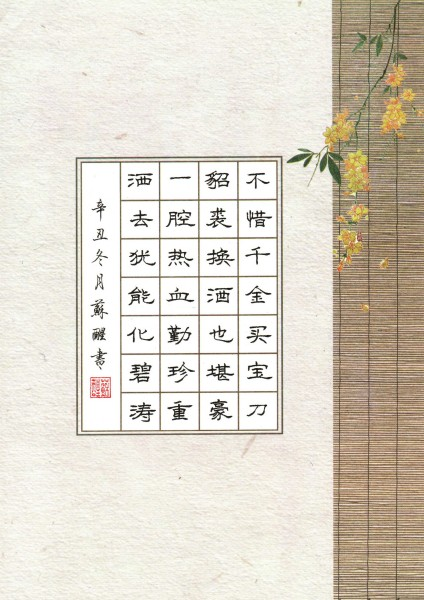 不惜千金买宝刀
貂裘换酒也堪豪
一腔热血勤珍重
洒去犹能化碧涛
辛丑冬月蘇醒書